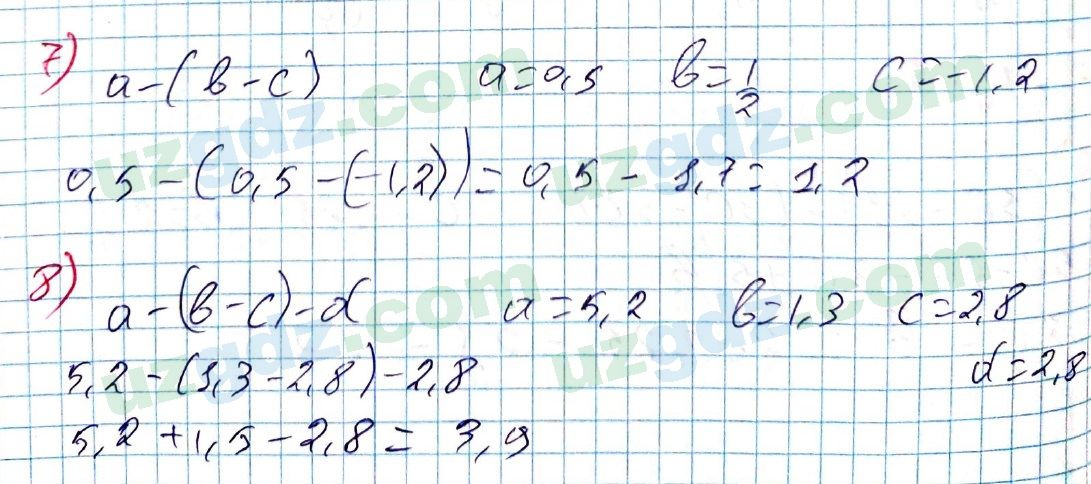 7) a-(b-c) a=0,5 b=1/2 c=-1,2
0,5-(0,5-(-1,2))=0,5-1,7=1,2
8) a-(b-c)-d a=5,2 b=1,3 c=2,8
5,2-(1,3-2,8)-2,8 d=2,8
5,2+1,5-2,8=3,9
uzgdz.com
uzgdz.com
uzgdz.com
uzgdz.com